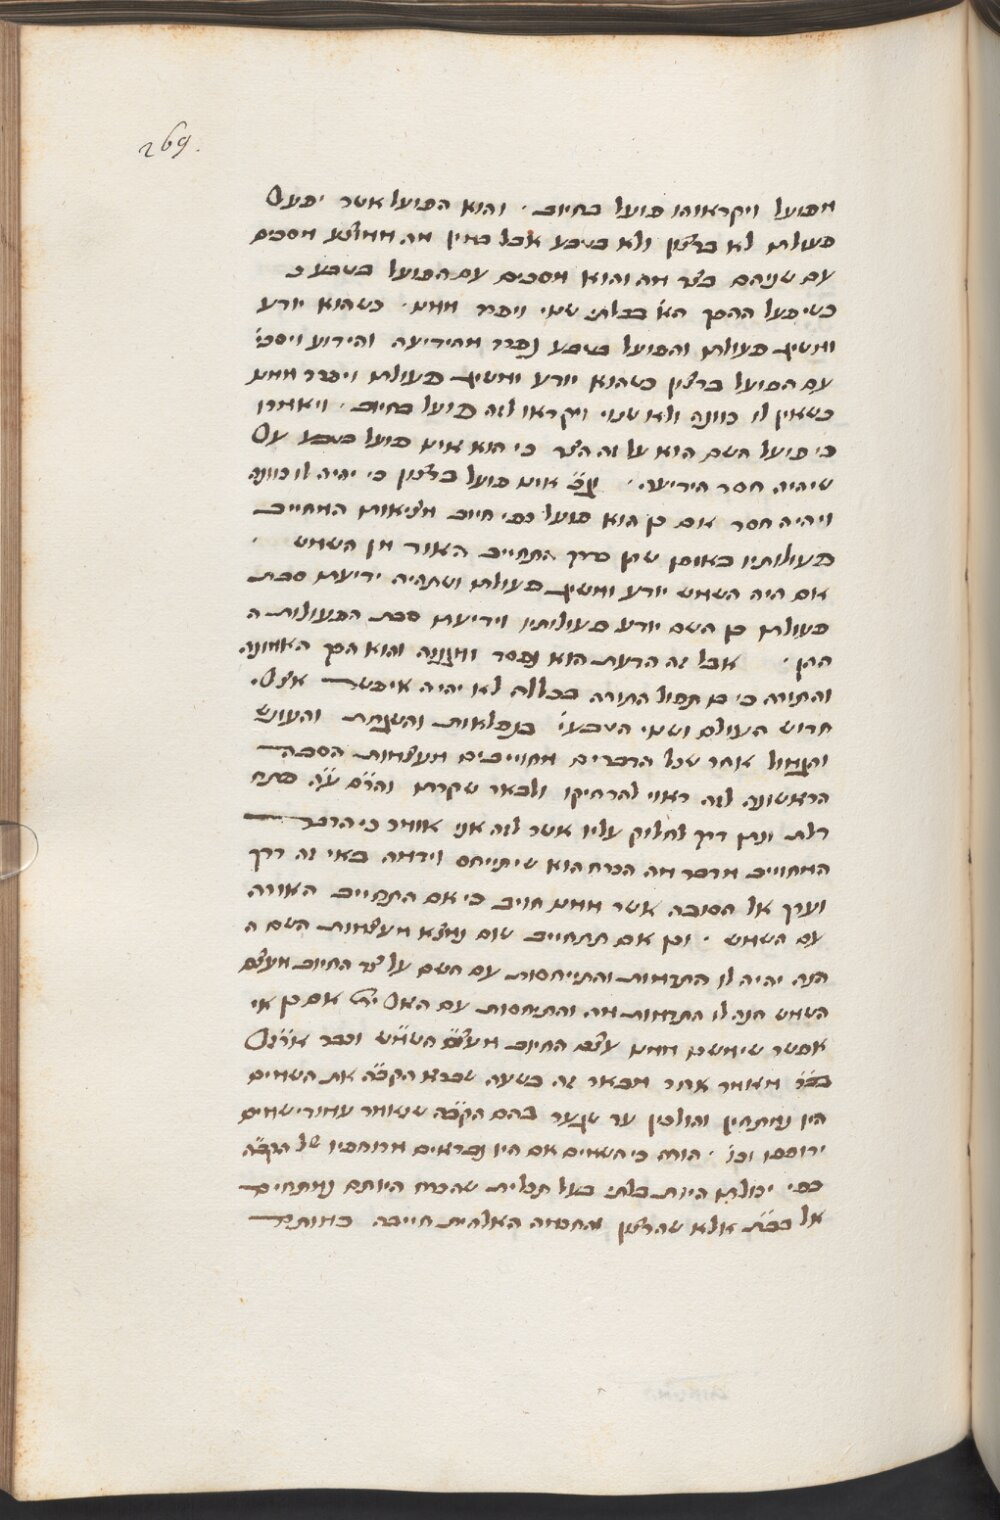 269.
מפועל ויקראוהו פועל בחיוב · והוא הפועל אשר יפעל
פעולתו לא ברצון ולא בטבע אבל כמין מה ממוצע מסכים
עם שניהם בצד מה והוא מסכים עם הפועל בטבע כ
כשיפעל ההפך הא בבלתי שנוי ויפרד ממנו · כשהוא יודע
ומשיג פעולתו והפועל בטבע נפרד מהידיעה והידוע ויסכי'
עם הפועל ברצון כשהוא יודע ומשיג פעולתו ויפרד ממנו
כשאין לו כוונה ולא שנוי ויקראו לזה פועל בחיוב · ויאמרו
כי פועל השם הוא על זה הצד כי הוא אינו פועל בטבע עד
שיהיה חסר הידיעה · וג"כ אינו פועל ברצון כי יהיה לו כוונה
ויהיה חסר אם כן הוא פועל כפי חיוב מציאותו המחייב
פעולותיו באופן שמן דרך התחייב האור מן השמש ·
אם היה השמש יודע ומשיג פעולתו ושתהיה ידיעתו סבת
פעולתו כן השם יודע פעולותיו וידיעתו סבת הפעולות ה
ההן · אבל זה הדעת הוא נפסד ומגונה והוא הפך האמונה
והתורה כי בו תפול התורה בכללה לא יהיה איפשר אצלו
חדוש העולם ושנוי הטבעי' בנפלאות והשגחת והעונש
והגמול אחר שכל הדברים מחוייבים מעצמות הסבה
הראשונה לזה ראוי להרחיקו ולבאר שקרותו והר"ם ע"ה פתח
דלת ונתן דרך לחלוק עליו אשר לזה אני אומר כי הדבר
המחוייב מדבר מה הכרח הוא שיתייחס וידמה באי זה דרך
וערך אל הסובה אשר ממנו חויב כי אם התחייב האורה
עם השמש · וכן אם תתחייב שום נמצא מעצמות השם ה
הנה יהיה לו התדמות והתייחסות עם השם על צד החיוב מעצם
השמש הנה לו התדמות מה והתיחסות עם האל ית' אם כן אי
אפשר שימשך ממנו עצם החיוב מעצם השמש וכבר ארז"ל
בב"ר מאמר אחד מבאר זה בשעה שברא הקב"ה את השמים
היו נמתחין והולכין עד שגער בהם הקב"ה שנאמר עמודי שמים
ירופפו וכו' · הורו כי השמים אם היו נבראים מרוחכיו של הקב"ה
כפי יכולתו היות בלתי בעל תכלית שהכרח היותם נמתחים
אל בב"ת אלא שהרצון והחכמה האלהית חייבה כמותם